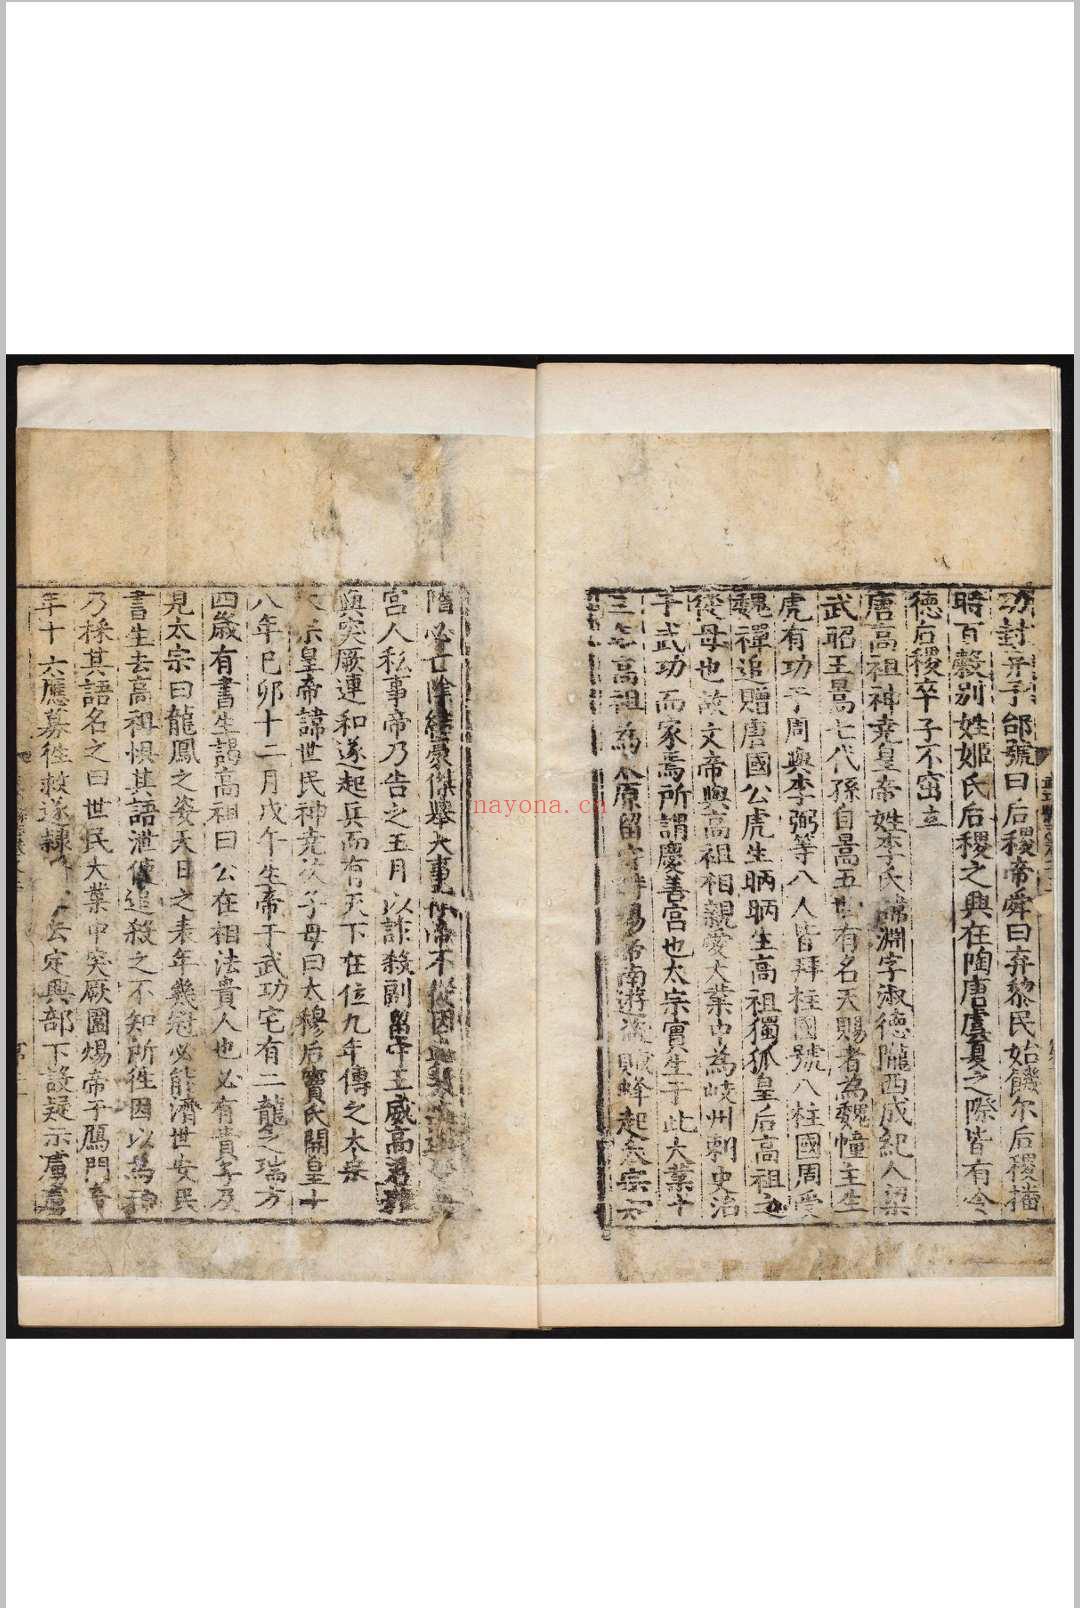 功封弃于邰號曰后稷帝舜曰弃黎民始饑尔后稷播
時百穀别姓姬氏后稷之興在陶唐虞夏之際皆有令
德后稷卒子不窋立
唐高祖神尭皇帝姓李氏諱淵字淑德隴西成紀人梁
武昭王暠七代孫自暠五世有名天賜者為魏幢主生
虎有功于周與李弼等八人皆拜柱國號八柱國周受
魏禪追贈唐國公虎生昞昞生高祖獨狐皇后高祖之
從母也故文帝與高祖相親愛大業中為岐州刺史治
于武功而家焉所謂慶善宫也太宗實生于此大業十
三年高祖為太原留守時煬帝南遊盗賊蜂起太宗
隋必亡隂結豪傑舉大事
宫人私事帝乃告之五月以詐殺副留守王威高君雅
與突厥連和遂起兵而有天下在位九年傳之太宗
太宗皇帝諱世民神尭次子母曰太穆后竇氏開皇十
八年巳卯十二月戊午生帝于武功宅有二龍之瑞方
四歳有書生謁高祖曰公在相法貴人也必有貴子及
見太宗曰龍鳳之姿天日之表年幾冠必能濟世安民
書生去高祖懼其語泄使追殺之不知所徃因以為神
乃採其語名之曰世民大業中突厥圍煬帝于鴈門帝
年十六應募徃救遂隷定興部下設疑示虜
nayona.cn